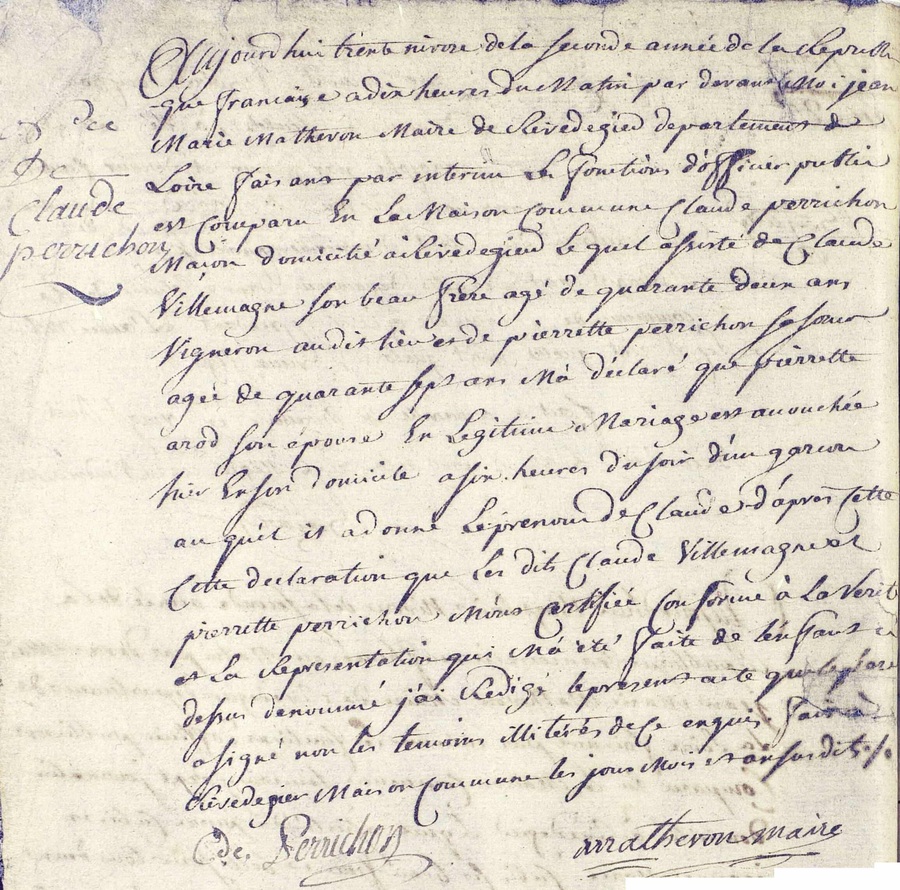 N.ce
De
Claude
perrichon
Aujourdhui trente nivose de la seconde année de la Republi
que francaise a dix heures du Matin par devant Moi jean
Marie Matheron Maire de Rivedegied departement de
Loire faisant par interim Les fonctions d'officier public
est Comparu En La Maison Commune Claude perrichon
Maçon domicilié à Rivedegied Le quel assisté de Claude
Villemagne son beau frere agé de quarante deux ans
Vigneron audit lieu et de pierrette perrichon Sa sœur
agée de quarante sept ans M'a déclaré que pierrette
arod son epouse En Legitime Mariage est acouchée
hier En son domicile a six heures du soir d'un garcon
au quel il a donné Le prenom de Claude d'apres Cette
Cette declaration que Les dits Claude Villemagne et
pierrette perrichon M'ont Certifiée Conforme à La Verité
et La Representation qui M'a été faite de l'enfant ci
dessus denommé j'ai Redigé le present acte que le pere
a signé non les temoins illiterés de Ce enquis fait à
Rivedegier Maison Commune les jour Mois et an susdits ./.
Cde. Perrichon
Matheron maire